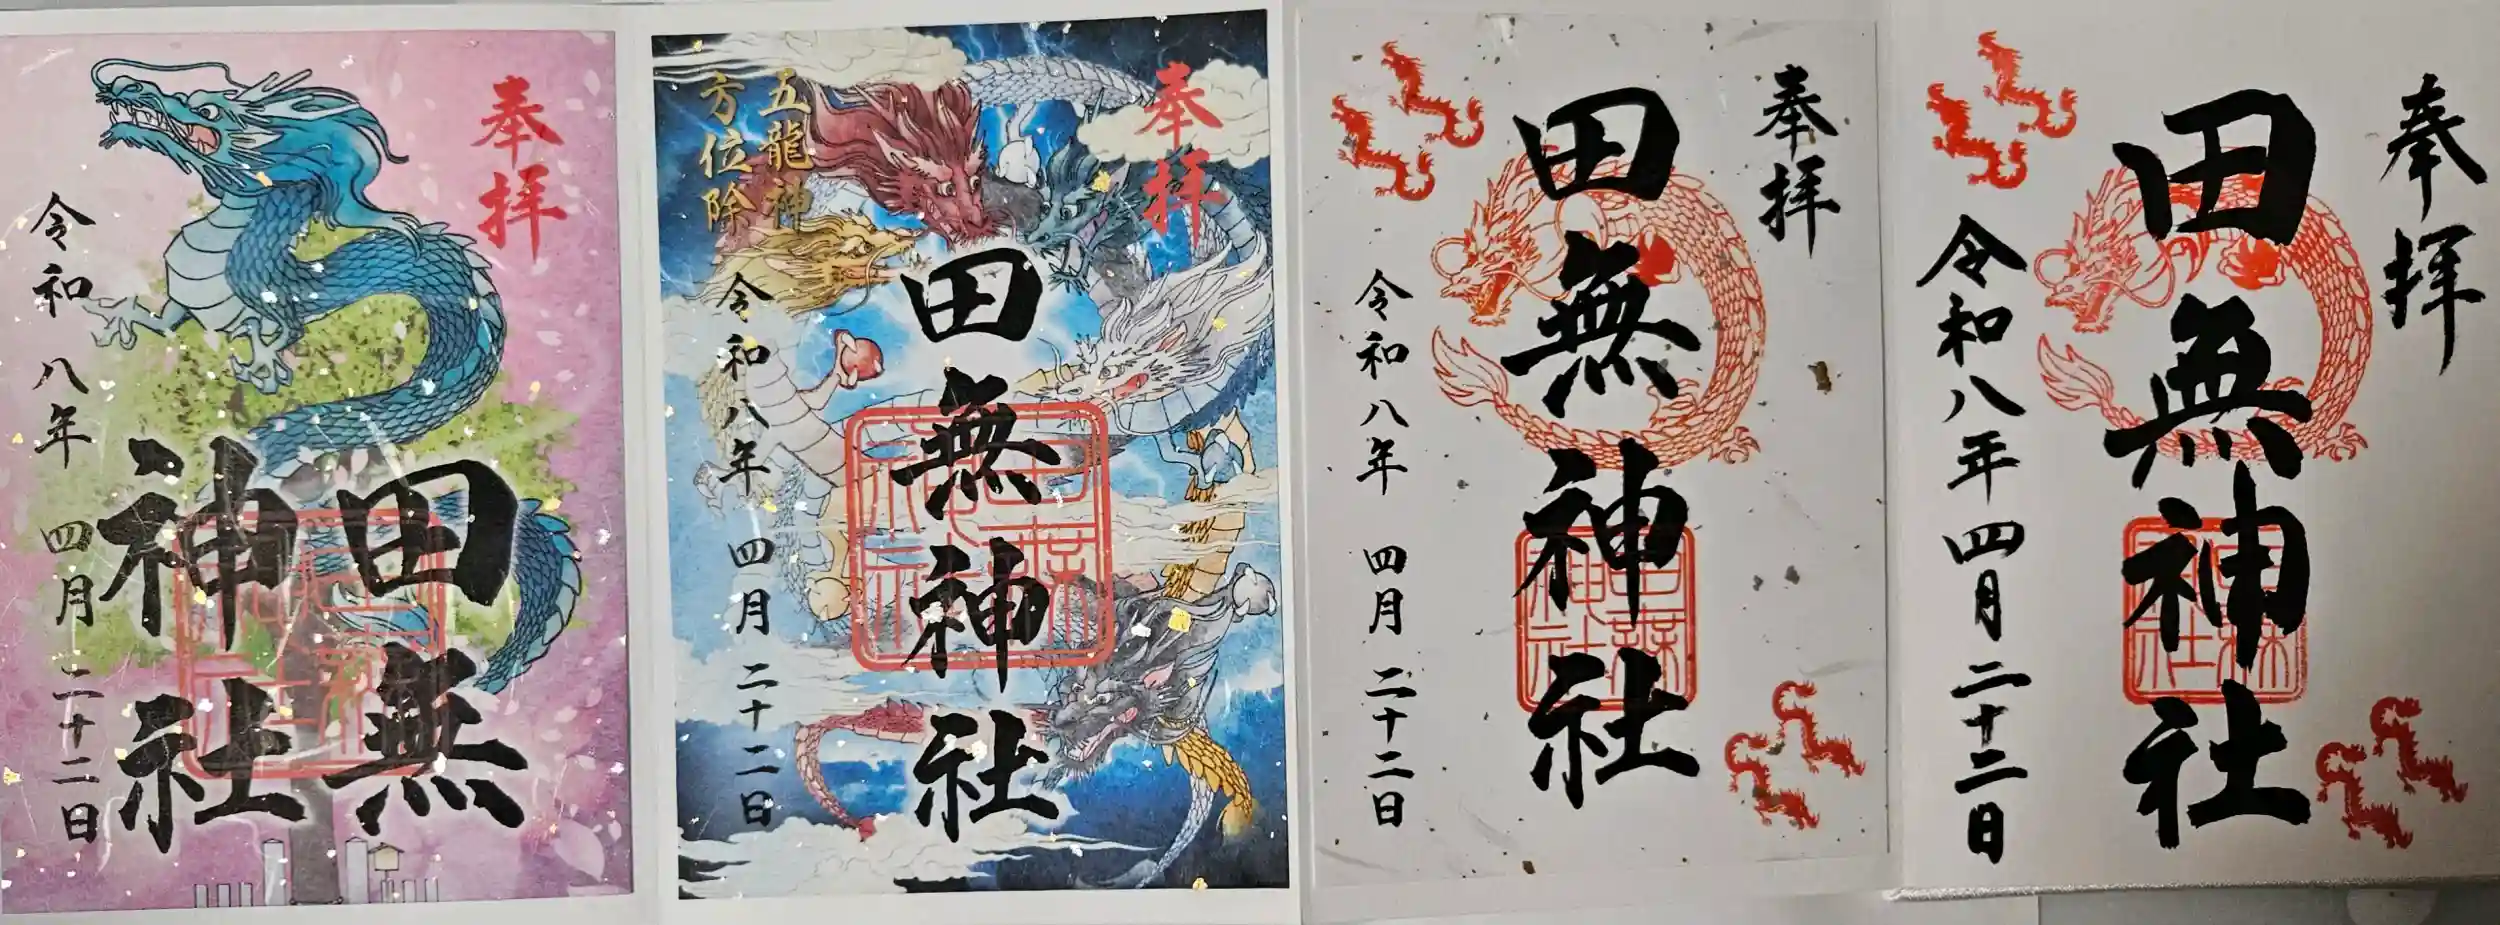 奉拝
田無
神社
令和八年四月二十二日
奉拝
五龍神
方位除
田無神社
令和八年四月二十二日
奉拝
田無神社
令和八年四月二十二日
奉拝
田無神社
令和八年四月二十二日